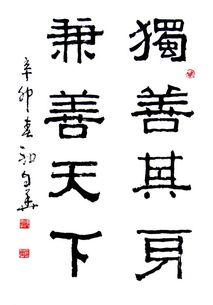 獨善其身
兼善天下
辛卯春